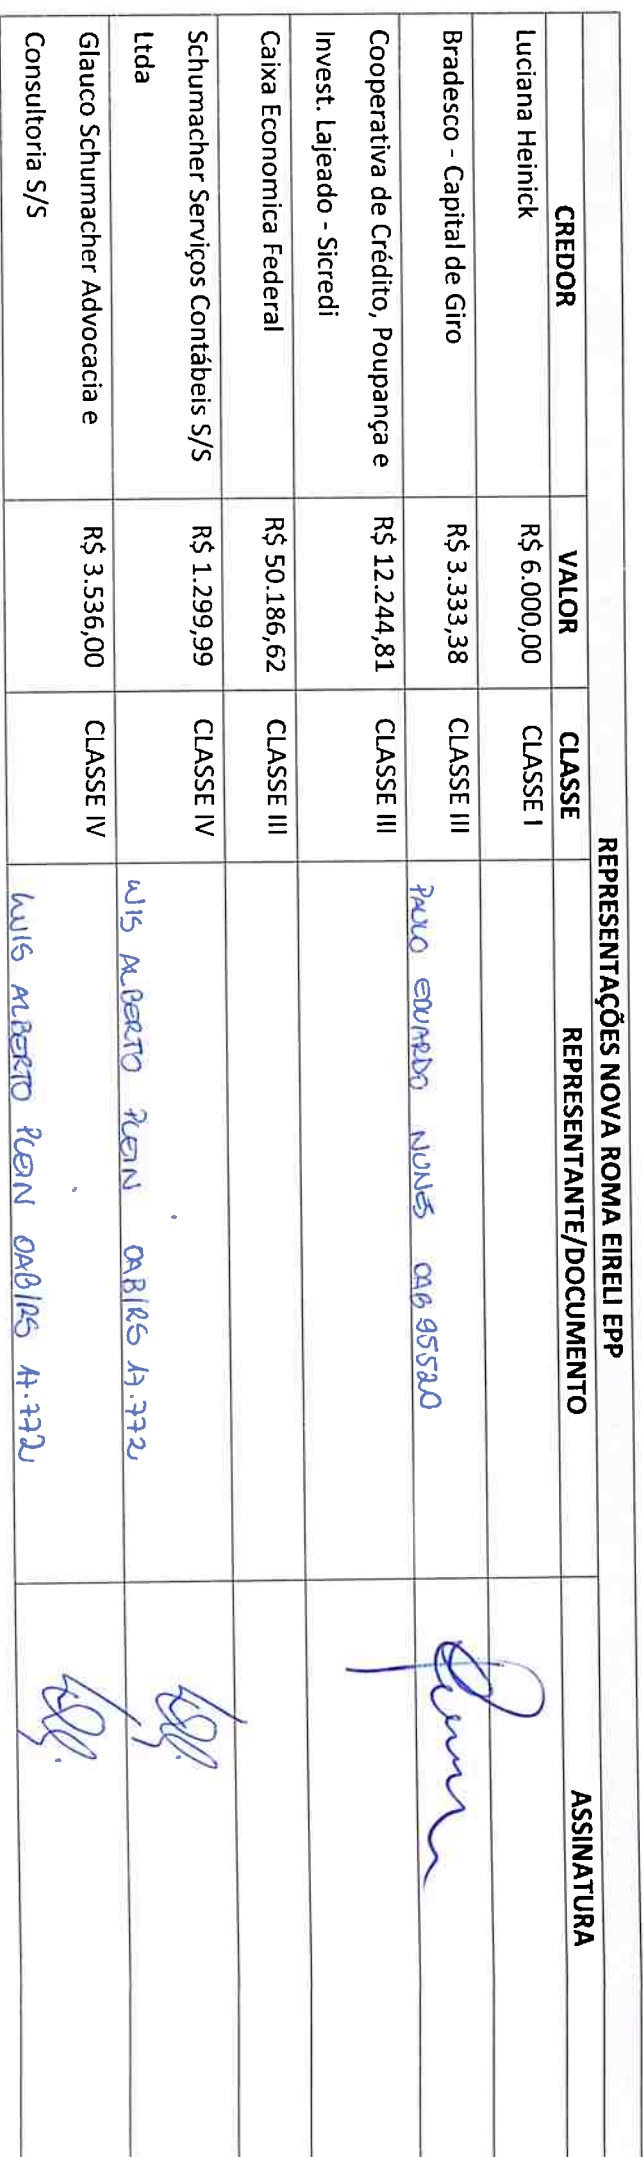 REPRESENTAÇÕES NOVA ROMA EIRELI EPP
CREDOR VALOR CLASSE REPRESENTANTE/DOCUMENTO ASSINATURA
Luciana Heinick R$ 6.000,00 CLASSE I
Bradesco - Capital de Giro R$ 3.333,38 CLASSE III PAULO EDUARDO NUNES OAB 95520
Cooperativa de Crédito, Poupança e R$ 12.244,81 CLASSE III
Invest. Lajeado - Sicredi
Caixa Economica Federal R$ 50.186,62 CLASSE III
Schumacher Serviços Contábeis S/S R$ 1.299,99 CLASSE IV
Ltda LUIS ALBERTO PLEIN OAB/RS 17.772
Glauco Schumacher Advocacia e R$ 3.536,00 CLASSE IV
Consultoria S/S LUIS ALBERTO PLEIN OAB/RS 17.772